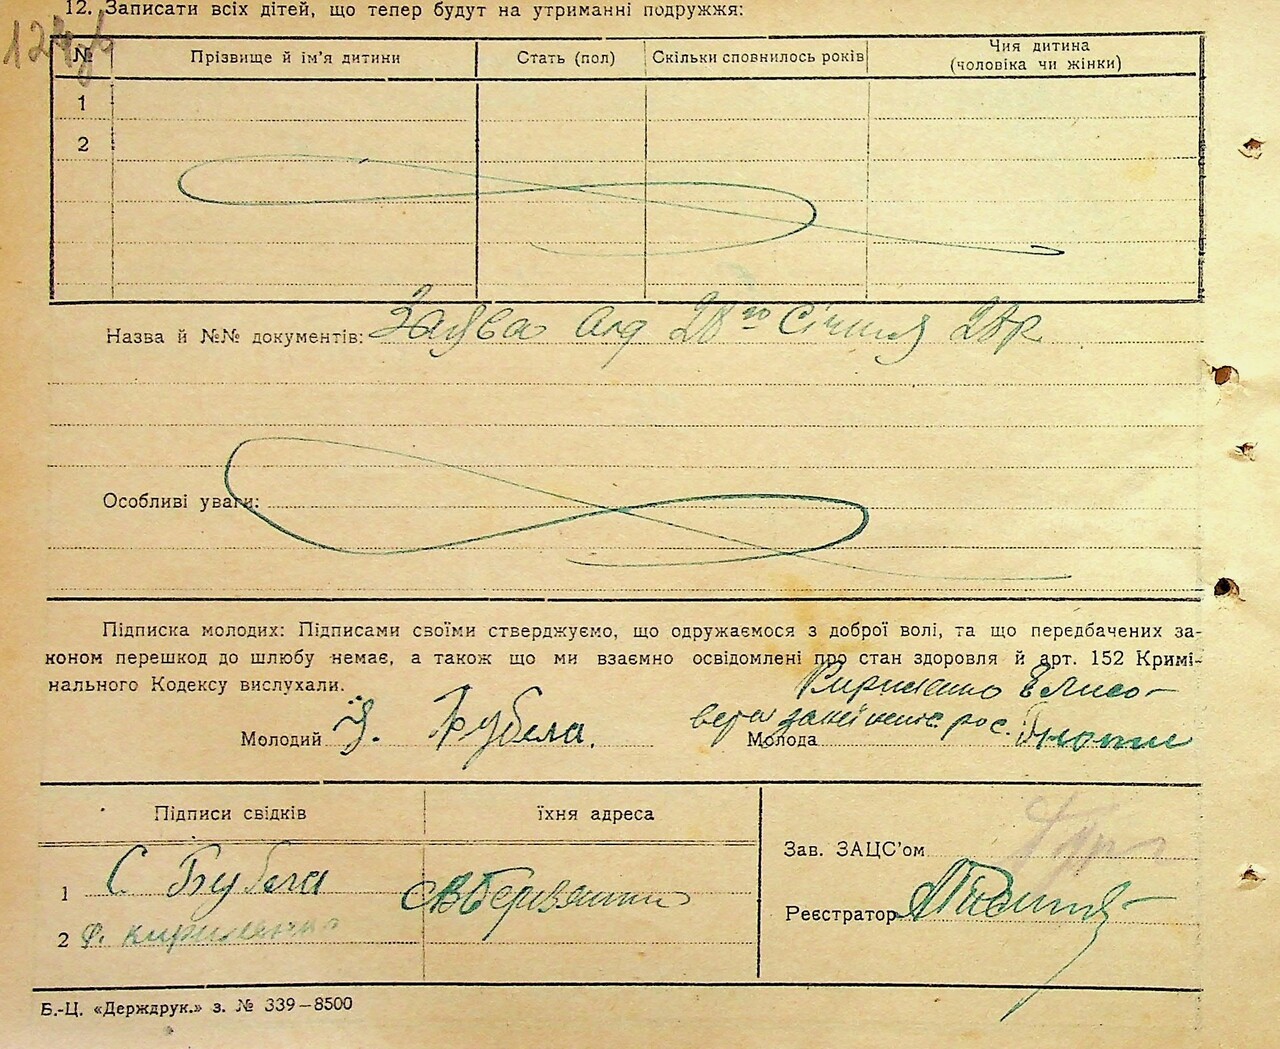 12. Записати всіх дітей, що тепер будут на утриманні подружжя:
№ Прізвище й ім'я дитини Стать (пол) Скільки сповнилось років Чия дитина (чоловіка чи жінки)
1
2
Назва й №№ документів: Заява од 28го Січня 28р.
Особливі уваги:
Підписка молодих: Підписами своїми стверджуємо, що одружаємося з доброї волі, та що передбачених за-
коном перешкод до шлюбу немає, а також що ми взаємно освідомлені про стан здоровля й арт. 152 Кримі-
нального Кодексу вислухали.
Кириленко Елисо-
вета рос.
Молодий Бубела. Молода
Підписи свідків їхня адреса
Зав. ЗАЦС'ом
1 С Бубела
Реєстратор
2 Ф. Кириленко
Б.-Ц. «Держдрук.» з. № 339–8500